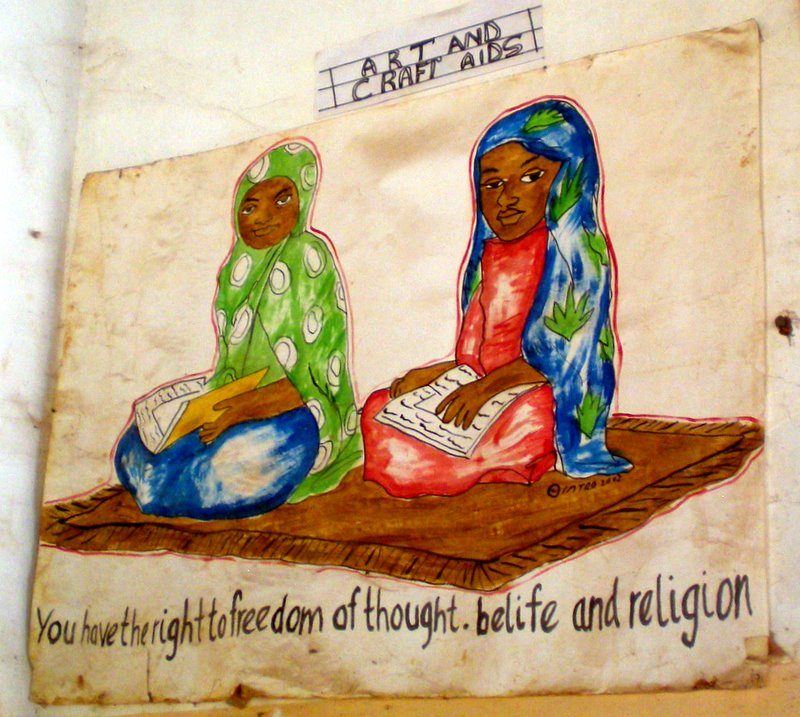 ART AND
CRAFT AIDS
You have the right to freedom of thought. belife and religion